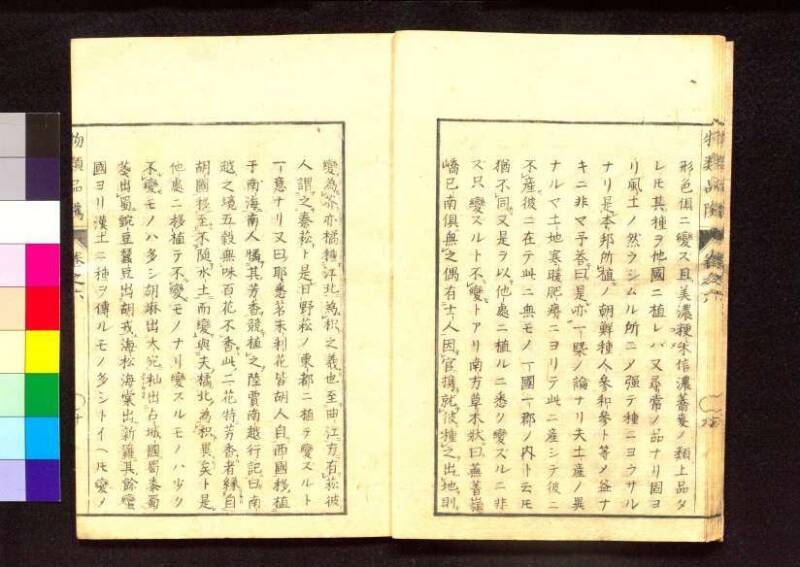 形色倶ニ變ス且美濃粳米信濃蕎麥ノ類上品タ
レ𪜈其種ヲ他國ニ植レバ又尋常ノ品ナリ固ヨ
リ風土ノ然ラシムル所ニ〆強テ種ニヨウサル
ナリ是本邦所植ノ朝鮮種人參和參ト等メ益ナ
キニ非マ予答曰是亦一槩ノ論ナリ夫土產ノ異
ナルマ土地寒暖肥瘠ニヨリテ此ニ產シテ彼ニ
不產彼ニ在テ此ニ無モノ丁國一郡ノ内ト云𪜈
猶不同又是ヲ以他處ニ植ルニ悉ク變ズルニ非
ス只變スルト不變トアリ南方草木狀曰蕪菁嶺
嶠已南俱無之偶有士人因官携就彼種之出地則
變為芥亦橘種江北為枳之義也至曲江方有菘彼
人謂之秦菘ト是日野菘ノ東都ニ植テ變スルト
丁意ナリ又曰耶悉茗末利花皆胡人自西國移植
于南海南人憐其芳香競植之陸賈南越行記曰南
越之境五穀無味百花不香此二花特芳香者緣自
胡國移至不隨水土而變與夫橘北為枳異矣ト是
他處ニ移植テ不變モノナリ變スルモノハ少ク
不變モノハ多シ胡麻出大宛秈出占城國蜀黍蜀
葵出蜀豌豆蠶豆出胡戎海松海棠出新羅其餘蠻
國ヨリ漢土ニ種ヲ傳ルモノ多シトイヘ𪜈變ノ
物類品隲 卷之六
十
物類品隲 卷之六
九